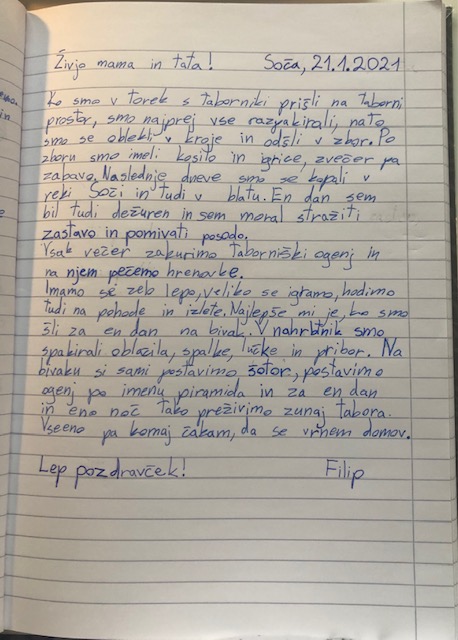 Živjo mama in tata! Soča, 21.1.2021
Ko smo v torek s taborniki prišli na taborni
prostor, smo najprej vse razpakirali, nato
smo se oblekli v kroje in odšli v zbor. Po
zboru smo imeli kosilo in igrice, zvečer pa
zabavo. Naslednje dneve smo se kopali v
reki Soči in tudi v blatu. En dan sem
bil tudi dežuren in sem moral stražiti
zastavo in pomivati posodo.
Vsak večer zakurimo taborniški ogenj in
na njem pečemo hrenovke.
Imamo se zelo lepo, veliko se igramo, hodimo
tudi na pohode in izlete. Najlepše mi je, ko smo
šli za en dan na bivak. V nahrbtnik smo
spakirali oblačila, spalke, lučke in pribor. Na
bivaku si sami postavimo šotor, postavimo
ogenj po imenu piramida in za en dan
in eno noč tako preživimo zunaj tabora.
Vseeno pa komaj čakam, da se vrnem domov.
Lep pozdravček! Filip